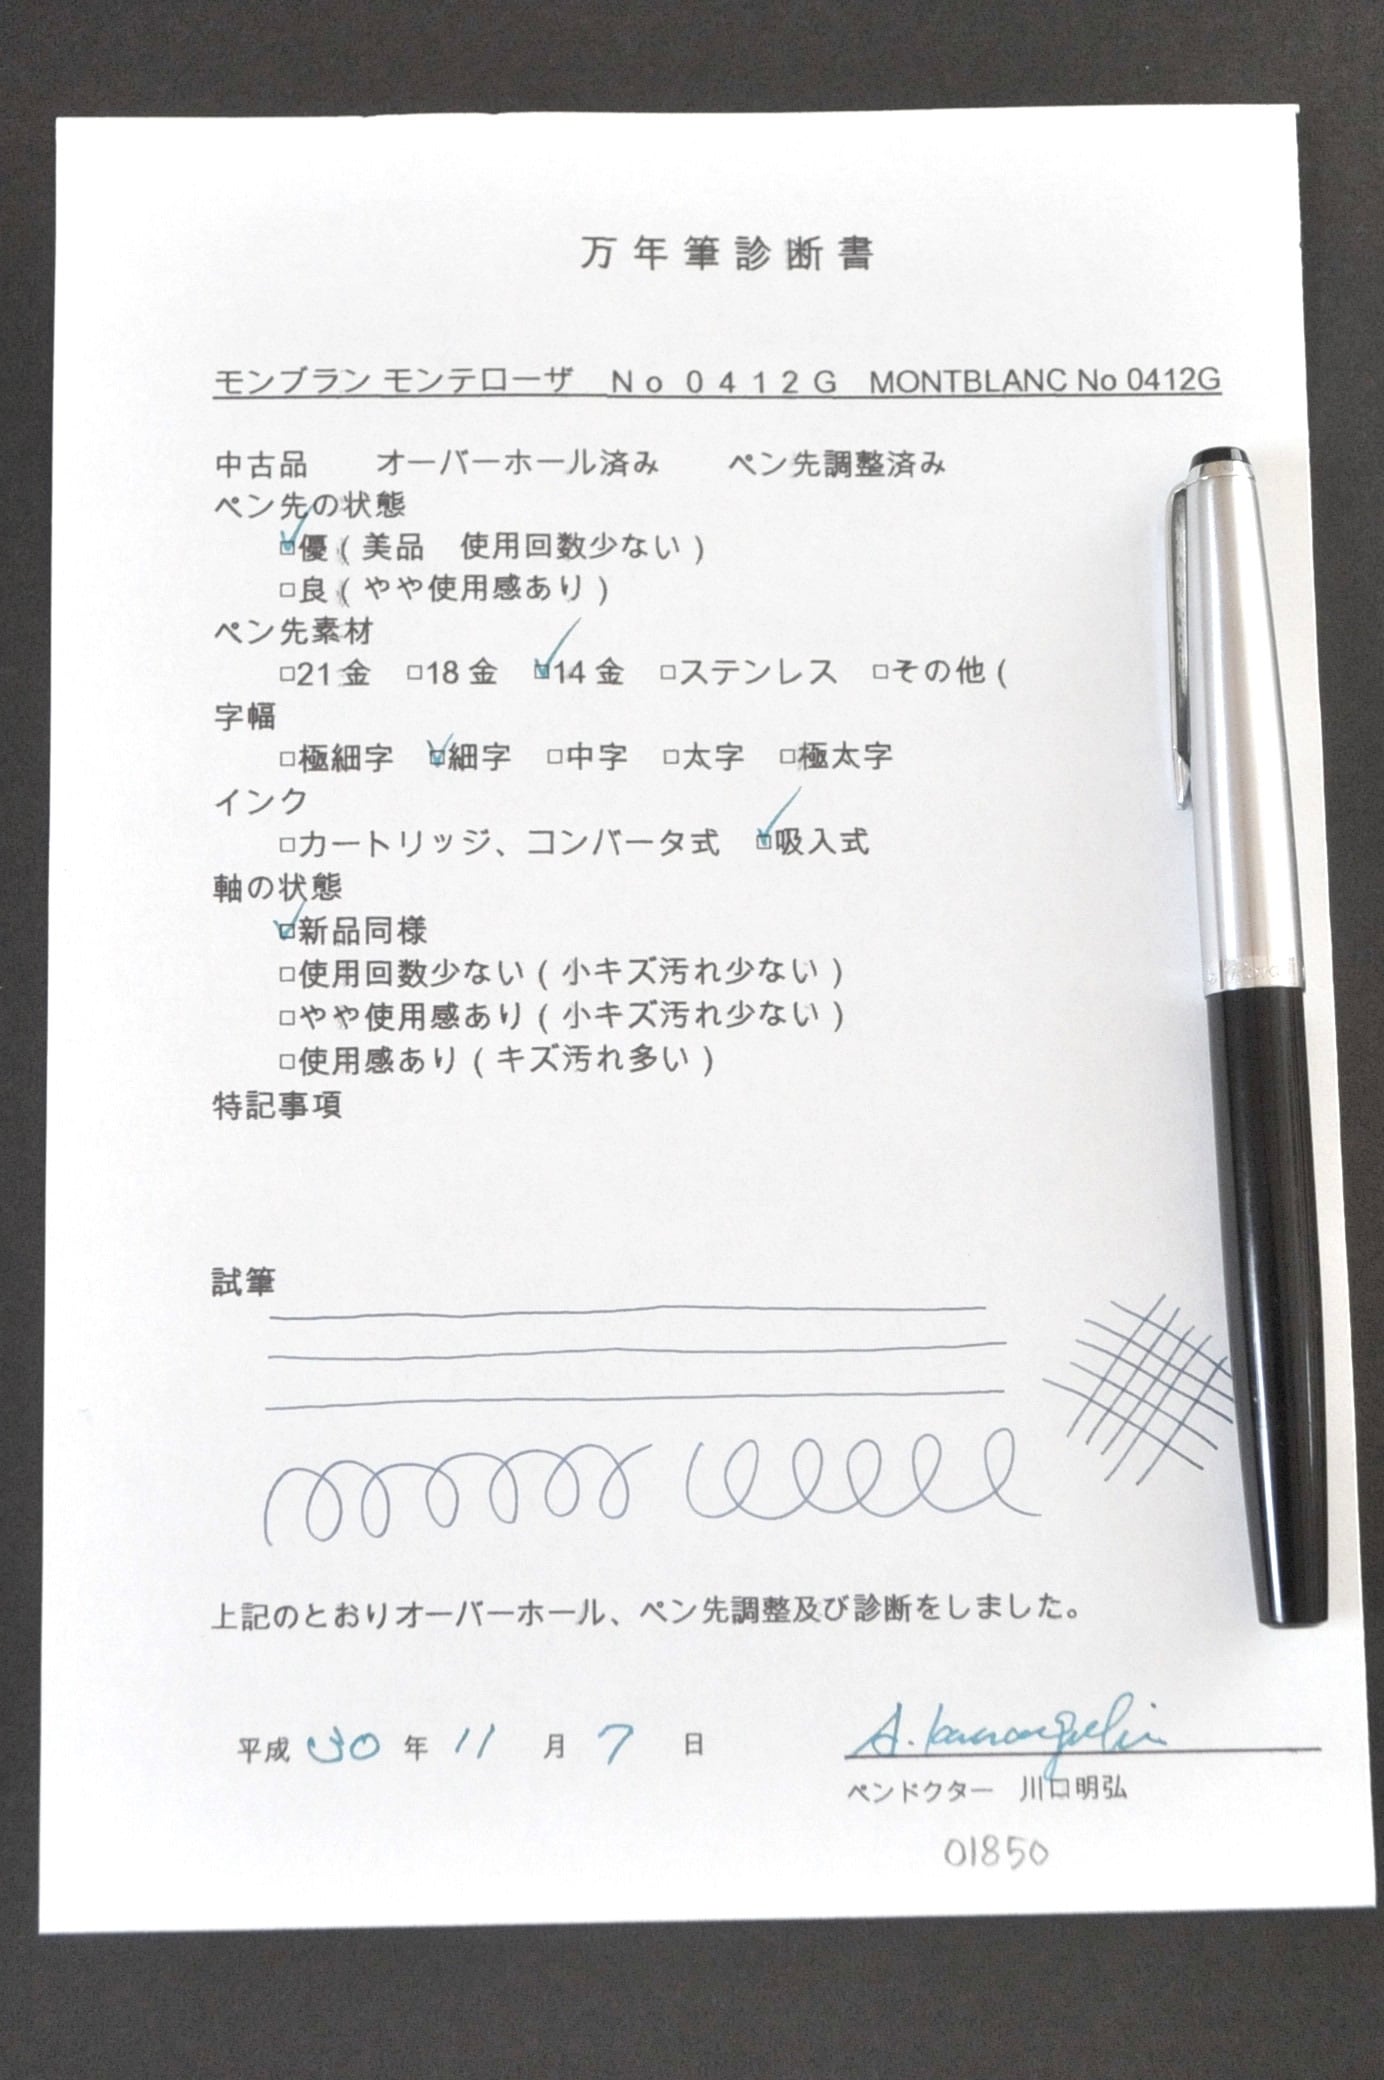 万年筆診断書
モンブラン モンテローザ　Ｎｏ ０４１２Ｇ　MONTBLANC No 0412G
中古品　　オーバーホール済み　　ペン先調整済み
ペン先の状態
☑優（美品　使用回数少ない）
□良（やや使用感あり）
ペン先素材
□21金　□18金　☑14金　□ステンレス　□その他（
字幅
□極細字　☑細字　□中字　□太字　□極太字
インク
□カートリッジ、コンバータ式　☑吸入式
軸の状態
☑新品同様
□使用回数少ない（小キズ汚れ少ない）
□やや使用感あり（小キズ汚れ少ない）
□使用感あり（キズ汚れ多い）
特記事項
試筆
上記のとおりオーバーホール、ペン先調整及び診断をしました。
平成 30 年 11 月 7 日
A. Kawaguchi
ペンドクター　川口明弘
01850